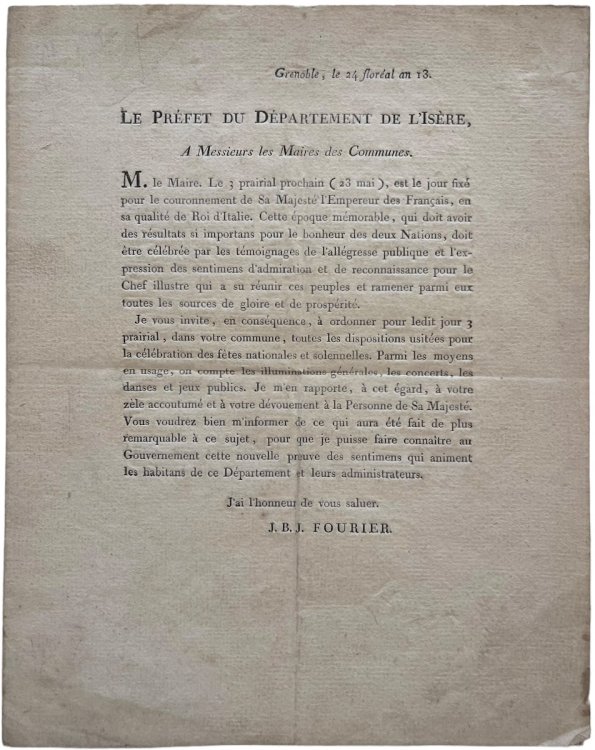 Grenoble, le 24 floréal an 13.
LE PRÉFET DU DÉPARTEMENT DE L'ISÈRE,
A Messieurs les Maires des Communes.
M. le Maire. Le 3 prairial prochain (23 mai), est le jour fixé
pour le couronnement de Sa Majesté l'Empereur des Français, en
sa qualité de Roi d'Italie. Cette époque mémorable, qui doit avoir
des résultats si importans pour le bonheur des deux Nations, doit
être célébrée par les témoignages de l'allégresse publique et l'ex-
pression des sentimens d'admiration et de reconnaissance pour le
Chef illustre qui a su réunir ces peuples et ramener parmi eux
toutes les sources de gloire et de prospérité.
Je vous invite, en conséquence, à ordonner pour ledit jour 3
prairial, dans votre commune, toutes les dispositions usitées pour
la célébration des fêtes nationales et solennelles. Parmi les moyens
en usage, on compte les illuminations générales, les concerts, les
danses et jeux publics. Je m'en rapporte, à cet égard, à votre
zèle accoutumé et à votre dévouement à la Personne de Sa Majesté.
Vous voudrez bien m'informer de ce qui aura été fait de plus
remarquable à ce sujet, pour que je puisse faire connaître au
Gouvernement cette nouvelle preuve des sentimens qui animent
les habitans de ce Département et leurs administrateurs.
J'ai l'honneur de vous saluer.
J. B. J. FOURIER.